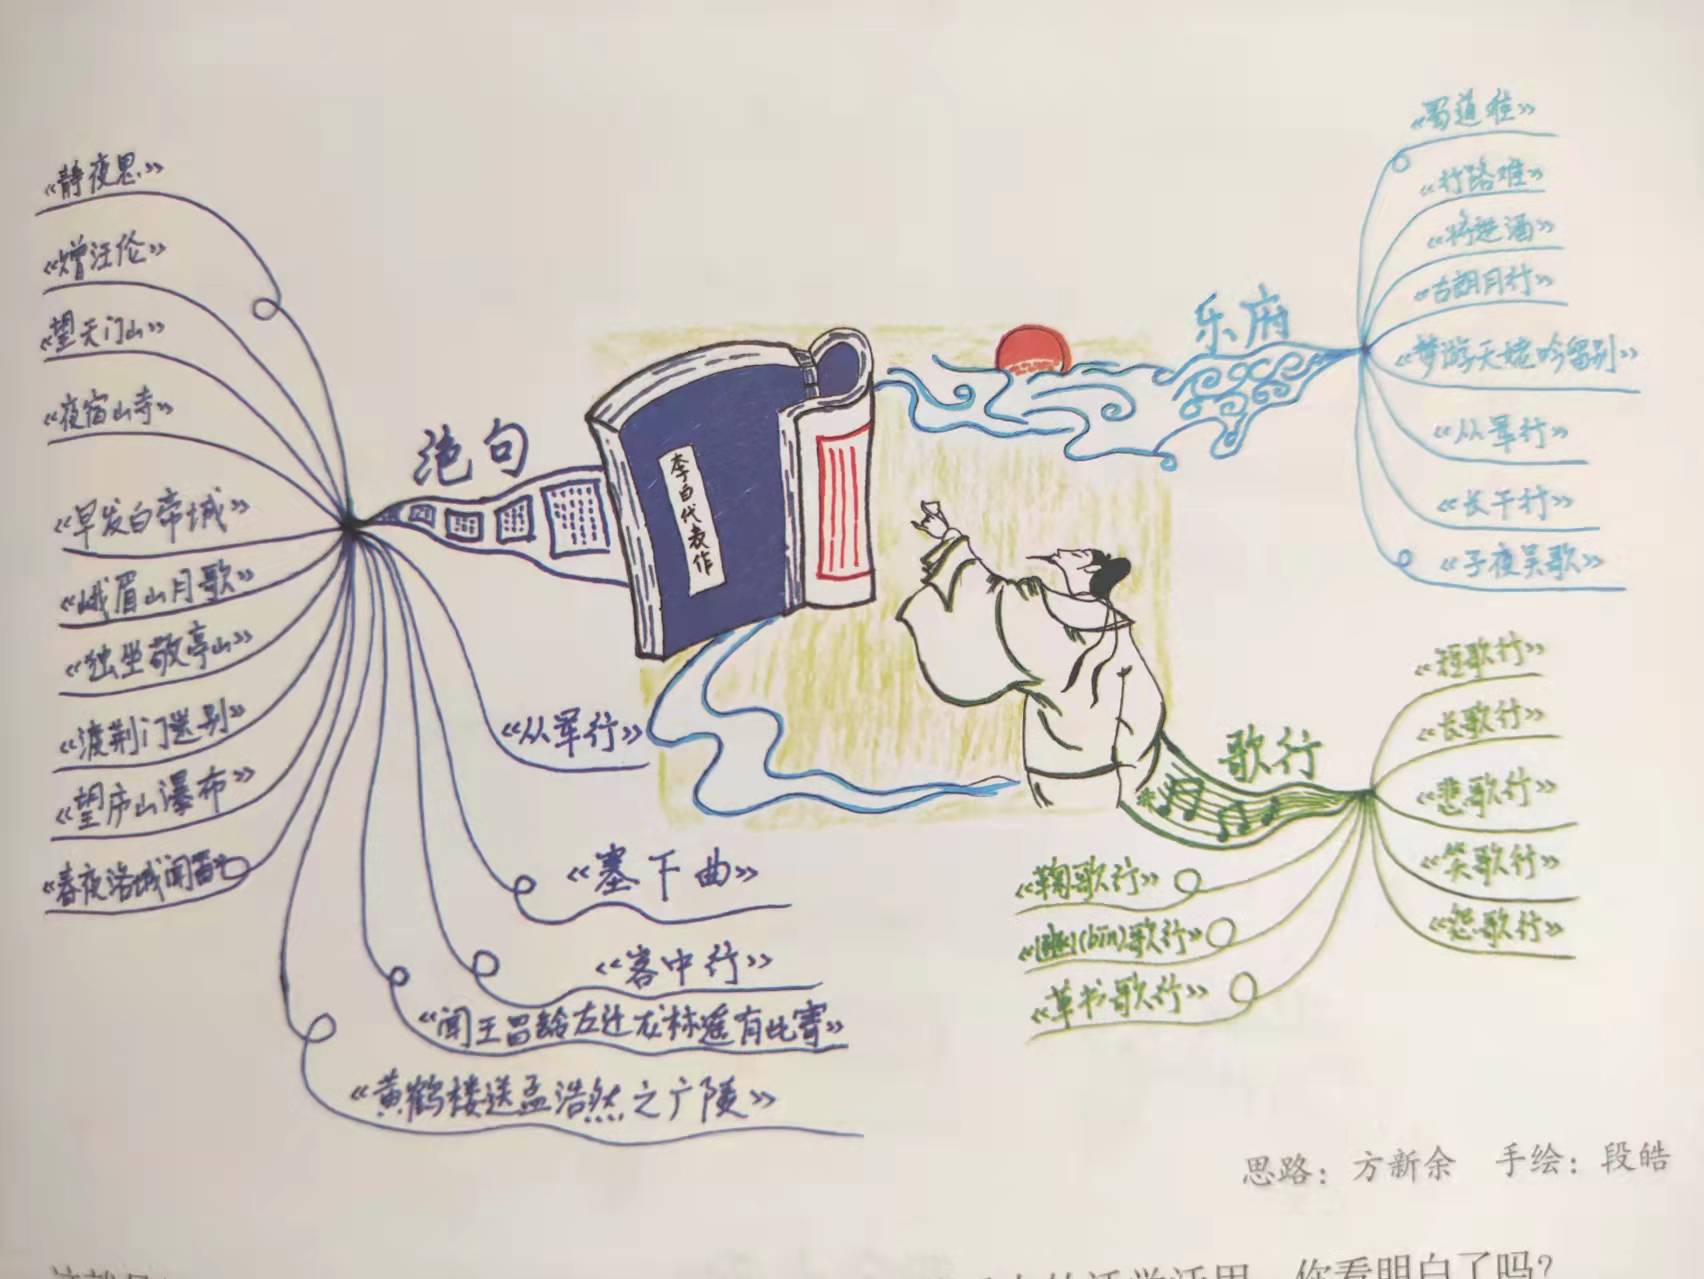 李白代表作
绝句
《静夜思》
《赠汪伦》
《望天门山》
《夜宿山寺》
《早发白帝城》
《峨眉山月歌》
《独坐敬亭山》
《渡荆门送别》
《望庐山瀑布》
《春夜洛城闻笛》
《从军行》
《塞下曲》
《客中行》
《闻王昌龄左迁龙标遥有此寄》
《黄鹤楼送孟浩然之广陵》
乐府
《蜀道难》
《行路难》
《将进酒》
《古朗月行》
《梦游天姥吟留别》
《从军行》
《长干行》
《子夜吴歌》
歌行
《短歌行》
《长歌行》
《悲歌行》
《笑歌行》
《怨歌行》
《鞠歌行》
《豳(bīn)歌行》
《草书歌行》
思路：方新余 手绘：段皓
你看明白了吗？